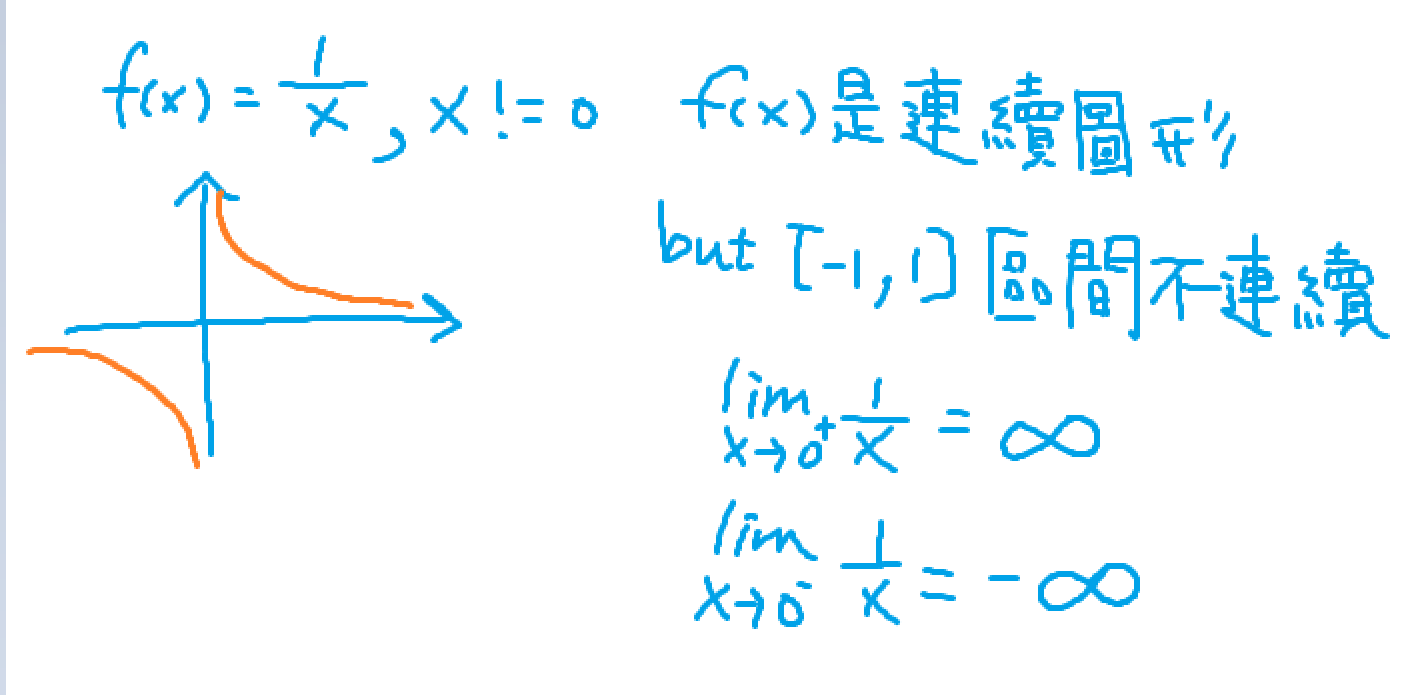 f(x) = 1/x , x != 0 f(x)是連續圖形
but [-1,1] 區間不連續
lim x→0⁺ 1/x = ∞
lim x→0⁻ 1/x = -∞